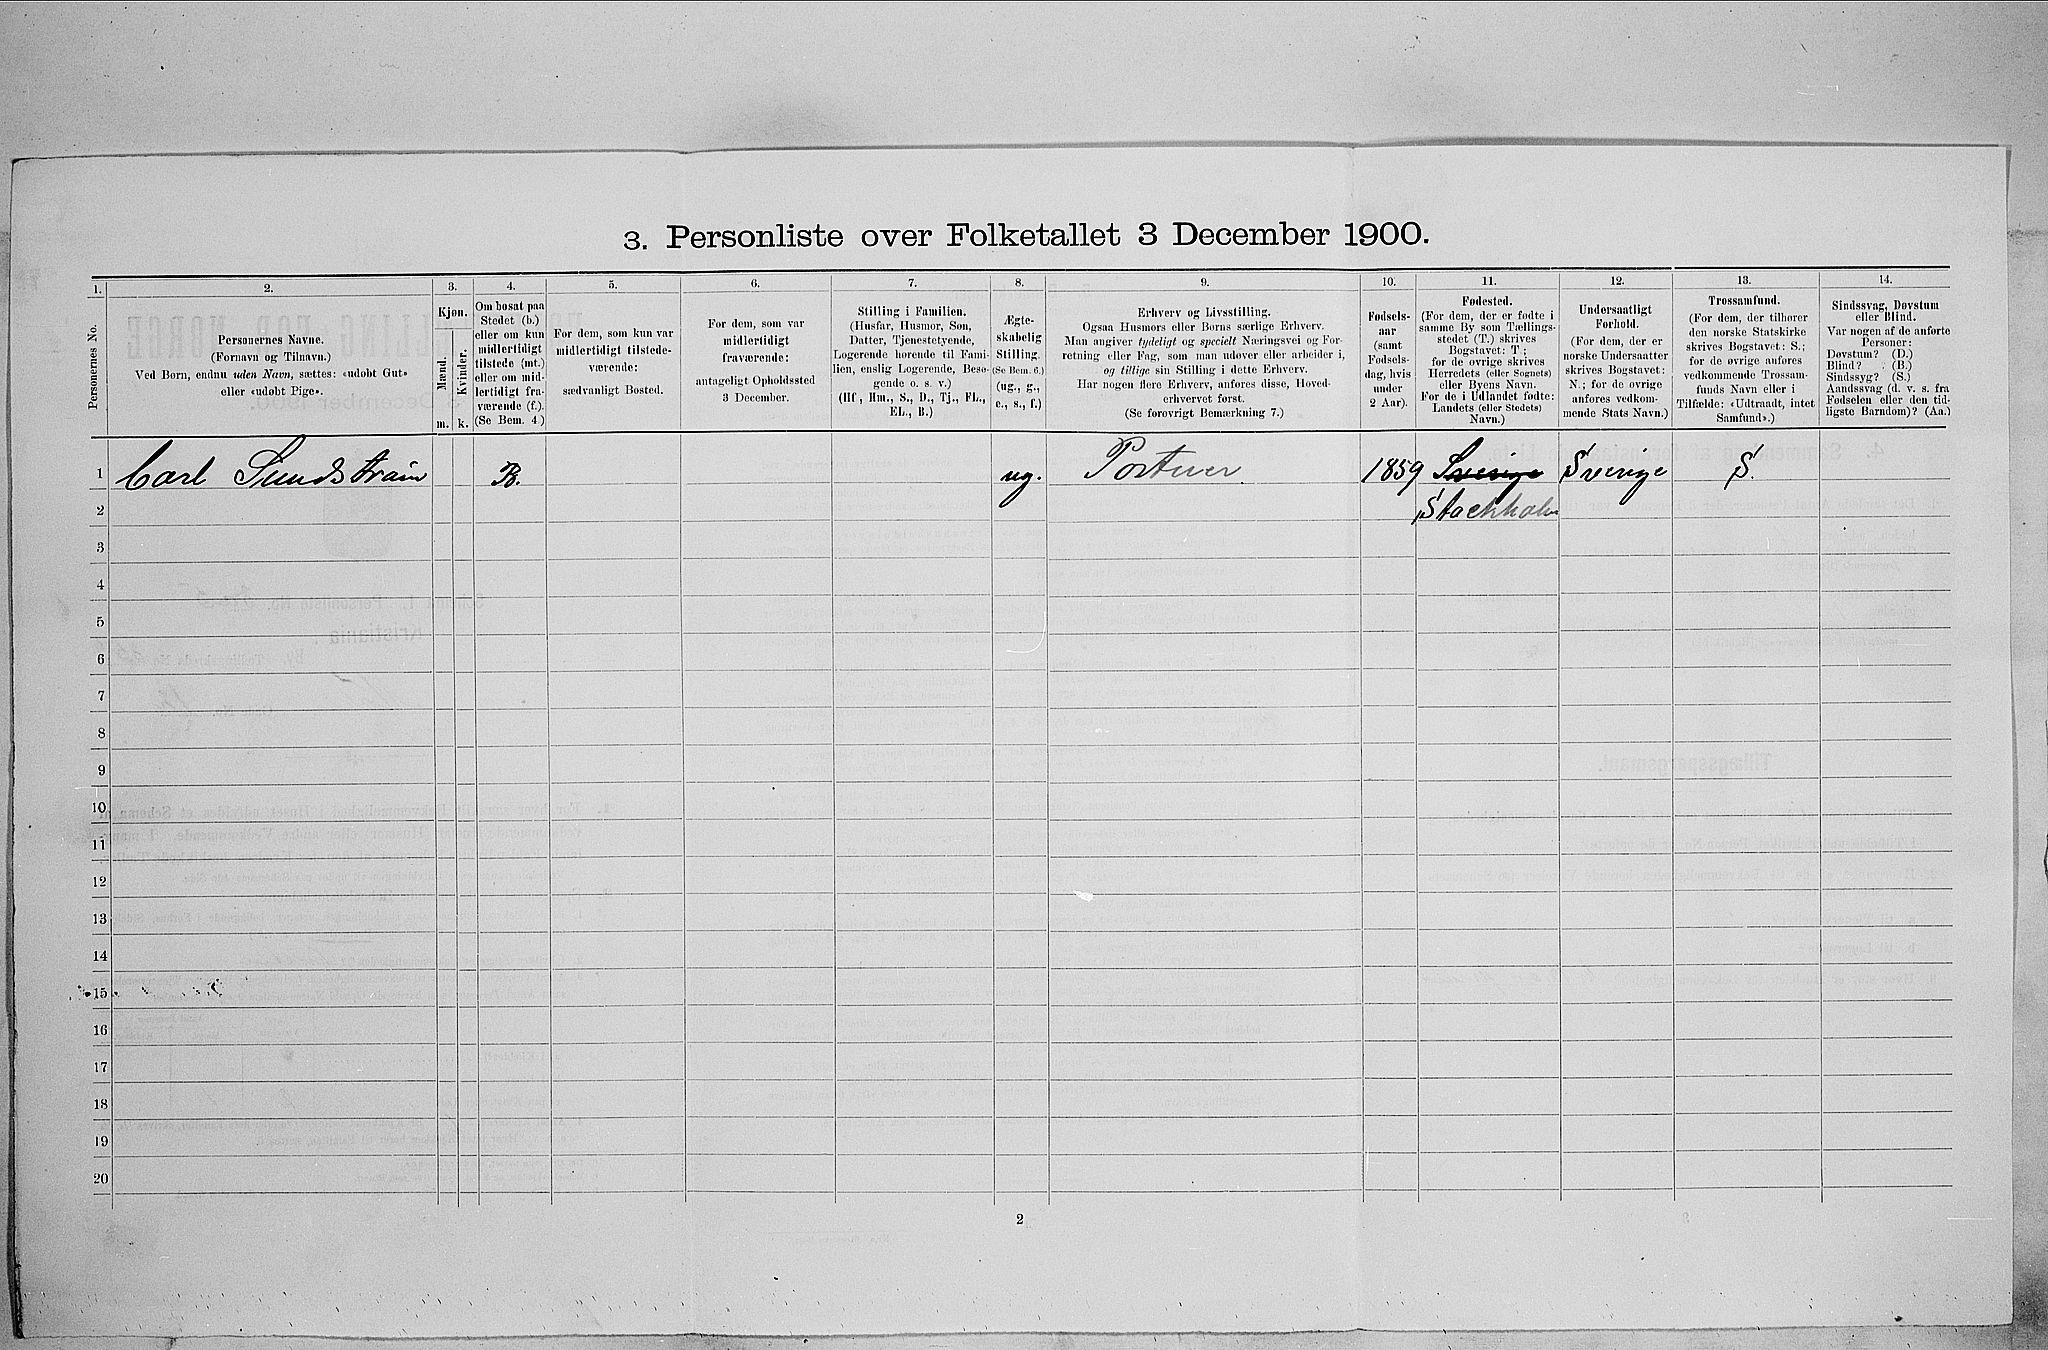 3. Personliste over Folketallet 3 December 1900.
1. 2. 3. 4. 5. 6. 7. 8. 9. 10. 11. 12. 13. 14.
Personernes No.
Personernes Navne.
(Fornavn og Tilnavn.)
Ved Børn, endnu uden Navn, sættes: «udøbt Gut»
eller «udøbt Pige».
Kjøn.
Mænd.
Kvinder.
m. k.
Om bosat paa
Stedet (b.)
eller om kun
midlertidigt
tilstede (mt.)
eller om mid-
lertidigt fra-
værende (f.).
(Se Bem. 4.)
For dem, som kun var
midlertidigt tilstede-
værende:
sædvanligt Bosted.
For dem, som var
midlertidigt
fraværende:
antageligt Opholdssted
3 December.
Stilling i Familien.
(Husfar, Husmor, Søn,
Datter, Tjenestetyende,
Logerende hørende til Fami-
lien, enslig Logerende, Besø-
gende o. s. v.)
(Hf., Hm., S., D., Tj., FL.,
EL., B.)
Ægte-
skabelig
Stilling.
(Se Bem. 6.)
(ug., g.,
e., s., f.)
Erhverv og Livsstilling.
Ogsaa Husmors eller Børns særlige Erhverv.
Man angiver tydeligt og specielt Næringsvei og For-
retning eller Fag, som man udøver eller arbeider i,
og tillige sin Stilling i dette Erhverv.
Har nogen flere Erhverv, anføres disse, Hoved-
erhvervet først.
(Se forøvrigt Bemærkning 7.)
Fødsels-
aar
(samt
Fødsels-
dag, hvis
under
2 Aar).
Fødested.
(For dem, der er fødte i
samme By som Tællings-
stedet (T.) skrives
Bogstavet: T.;
for de øvrige skrives
Herredets (eller Sognets)
eller Byens Navn.
For de i Udlandet fødte:
Landets (eller Stedets)
Navn.)
Undersaatligt
Forhold.
(For dem, der er
norske Undersaatter
skrives Bogstavet:
N.; for de øvrige
anføres vedkom-
mende Stats Navn.)
Trossamfund.
(For dem, der tilhører
den norske Statskirke
skrives Bogstavet: S.;
for de øvrige anføres
vedkommende Trossam-
funds Navn eller i
Tilfælde: «Udtraadt, intet
Samfund».)
Sindssvag, Døvstum
eller Blind.
Var nogen af de anførte
Personer:
Døvstum? (D.)
Blind? (B.)
Sindssyg? (S.)
Aandssvag (d. v. s. fra
Fødselen eller den tid-
ligste Barndom)? (Aa.)
1 Carl Sundstrøm B. ug. Portner 1859 Sverige Sverige S.
2 Stockholm
3
4
5
6
7
8
9
10
11
12
13
14
15
16
17
18
19
20
2